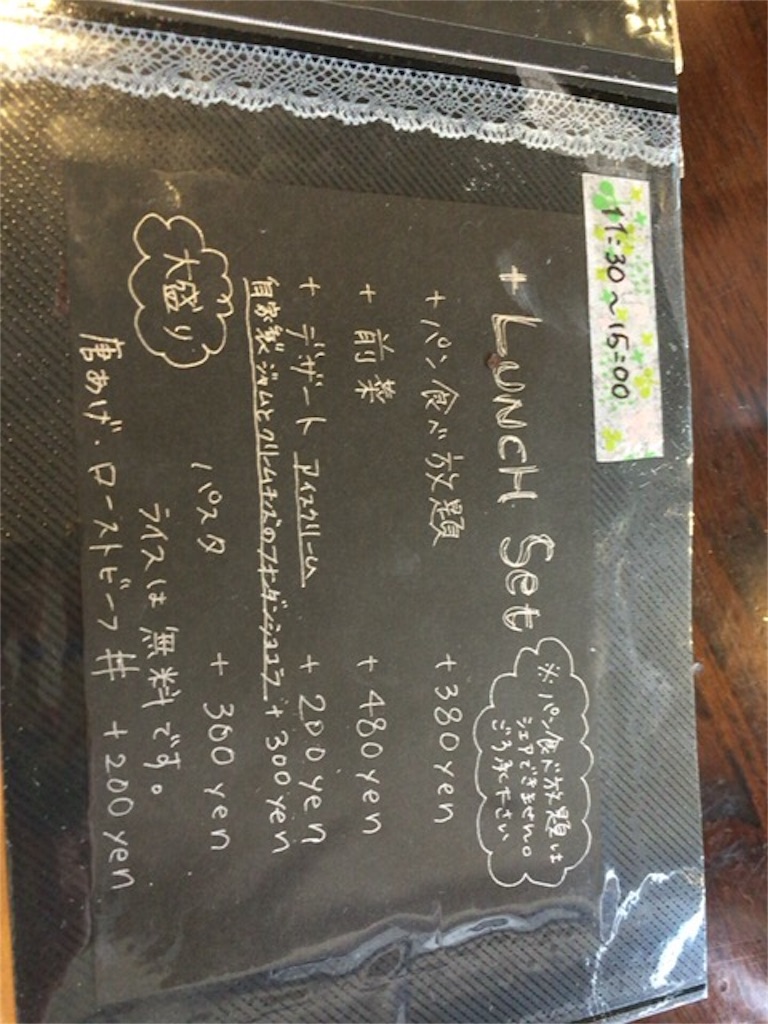 11:30～15:00
+ LUNCH Set
※パン食べ放題は
シェアできません。
ごう承下さい
+ パン食べ放題 +380yen
+ 前菜 +480yen
+ デザート アイスクリーム +200yen
自家製ジャムとクリームチーズのフォンダンショコラ +300yen
大盛り
パスタ +300yen
ライスは無料です。
唐あげ・ローストビーフ丼 +200yen